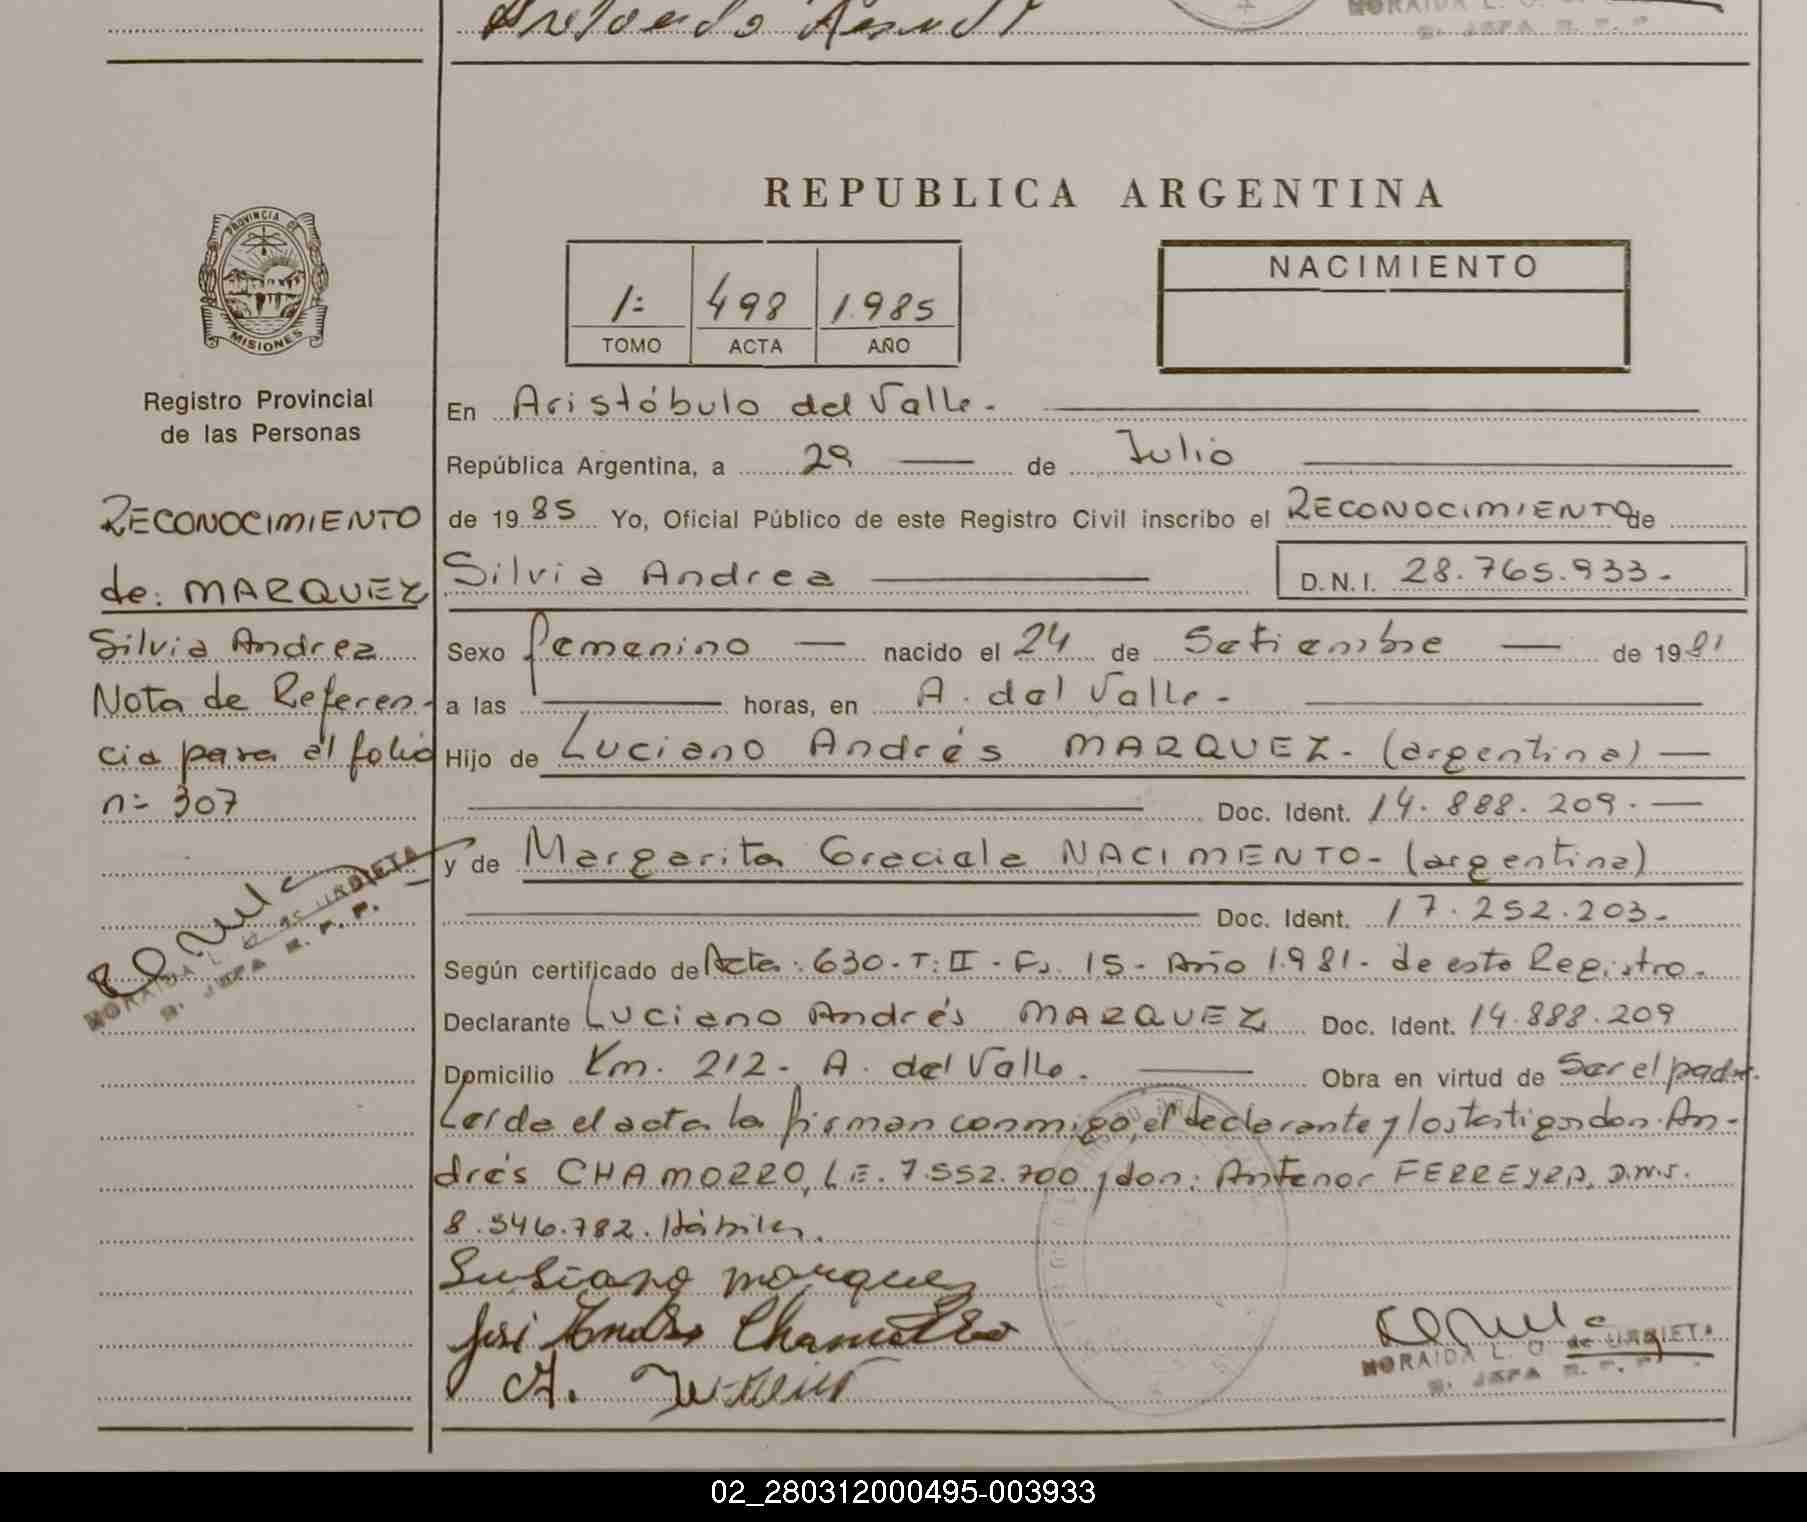 REPUBLICA ARGENTINA
PROVINCIA DE
MISIONES
Registro Provincial
de las Personas
1= 498 1.985
TOMO ACTA AÑO
NACIMIENTO
RECONOCIMIENTO
de: MARQUEZ
Silvia Andrea
Nota de Referen-
cia para el folio
n= 307
NORAIDA L. O. de URBIETA
En Aristóbulo del Valle.
República Argentina, a 29 de Julio
de 1985 Yo, Oficial Público de este Registro Civil inscribo el RECONOCIMIENTO de
Silvia Andrea D.N.I. 28.765.933.
Sexo femenino nacido el 24 de Setiembre de 1981
a las horas, en A. del Valle.
Hijo de Luciano Andrés MARQUEZ. (argentina)
Doc. Ident. 14.888.209.
y de Margarita Graciela NACIMENTO- (argentina)
Doc. Ident. 17.252.203.
Según certificado de Acta: 630. T: II. Fs. 15. Año 1.981. de este Registro.
Declarante Luciano Andrés MARQUEZ Doc. Ident. 14.888.209
Domicilio Km. 212. A. del Valle. Obra en virtud de Ser el padre.
Leída el acta la firman conmigo, el declarante y los testigos don. An-
drés CHAMORRO, L.E. 7.552.700 y don: Antenor FERREYRA, D.N.I.
8.546.782. Hábiles.
Lusiano marques
José Andres Chamorro
NORAIDA L. O. de URBIETA
02_280312000495-003933